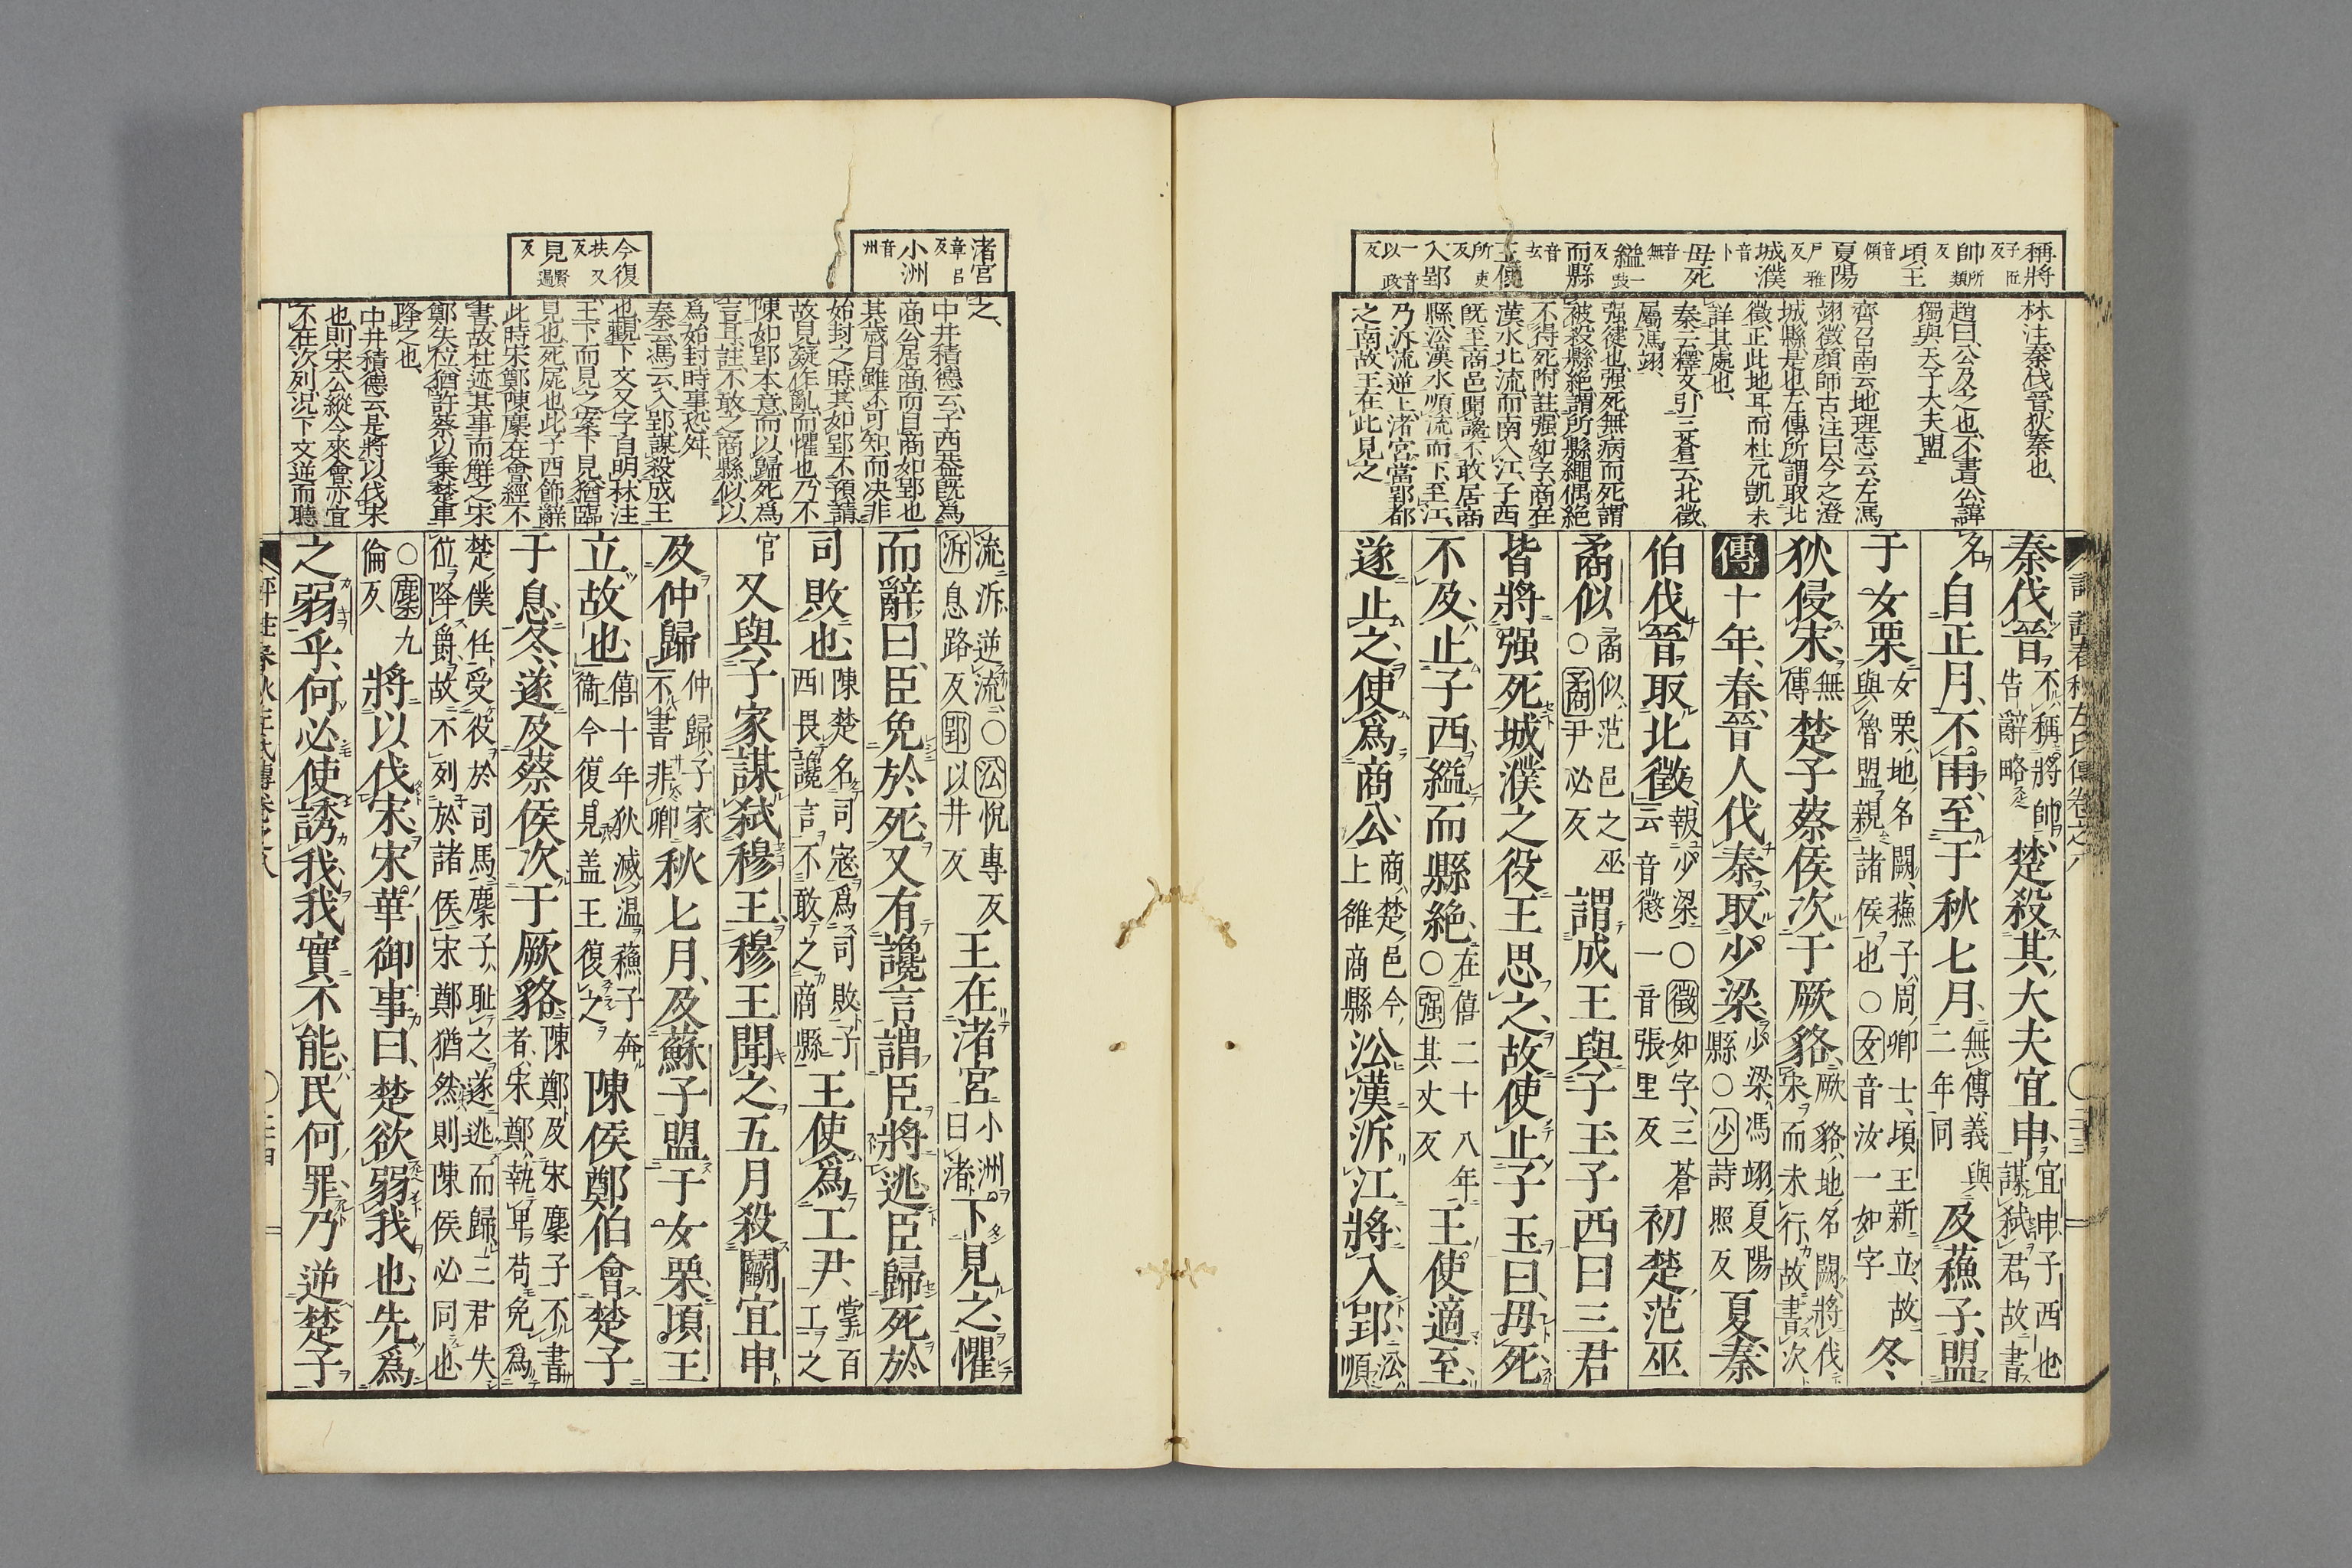 稱將子匠反
帥所類反
頃王音傾
夏陽戸雅反
城濮音卜
毋死音無
縊一豉反
而縣音玄
王使所吏反
入郢
林注秦伐晉狄秦也、
趙曰、公及之也、不書公、諱
獨與天子大夫盟
齊召南云、地理志云、左馮
翊徵、顔師古注曰、今之澄
城縣是也、左傳所謂取北
徵、正此地耳、而杜元凱未
詳其處也、
秦云、釋文引三蒼云、北徵、
屬馮翊、
强健也、强死、無病而死、謂
被殺、縣絶、謂所縣繩偶絶
不得死、附註、强如字、商在
漢水北、流而南入江、子西
既至商邑、聞讒不敢居商
縣、沿漢水順流而下、至江、
乃泝流逆上、渚宮當郢都
之南、故王在此見之
秦伐晉、不稱將帥、告辭略楚殺其大夫宜申、宜申、子西也謀弑君、故書
名自正月、不雨、至于秋七月、無傳義與二年同及蘇子、盟
于女栗女栗、地名闕、蘇子、周卿士、頃王新立、故與魯盟、親諸侯也○女音汝一如字冬
狄侵宋、無傳楚子蔡侯次于厥貉、厥貉、地名闕、將伐宋而未行、故書次
傳十年、春、晉人伐秦、取少梁、少梁、馮翊夏陽縣○少詩照反夏秦
伯伐晉、取北徵、報少梁○徵如字、三蒼云音懲一音張里反初楚范巫
矞似、矞似、范邑之巫○矞尹必反謂成王與子玉子西曰、三君
皆將强死、城濮之役、王思之、故使止子玉曰、毋死、
不及、止子西、縊而縣絶、在僖二十八年○强其丈反王使適至、
遂止之、使爲商公、商、楚邑今上雒商縣沿漢泝江、將入郢、沿順
渚宮章呂反
小洲音州
今復扶又反
見賢遍反
之、
中井積德云、子西蓋既爲
商公居商、而自商如郢也
其歳月雖不可知、而決非
始封之時、其如郢不預謂
故見疑作亂、而懼也、乃不
陳如郢本意、而以歸死爲
言耳、註不敢之商縣、似以
爲始封時事、恐舛、
秦云、馮云、入郢、謀殺成王
也、觀下文又字自明、林注
王下而見之、案下見猶臨
見也、死、屍也、此子西飾辭
此時宋鄭陳麇在會、經不
書、故杜迹其事而解之、宋
鄭失位、猶許蔡以乗楚車
降之也、
中井積德云、是將以伐宋
也、則宋公縱今來會、亦宜
不在次列、况下文逆而聽
流泝、逆流○沿悦專反泝息路反郢以井反王在渚宮、小洲曰渚下見之、懼
而辭曰、臣免於死、又有讒言、謂臣將逃、臣歸死於
司敗也、陳楚名司寇爲司敗、子西畏讒言、不敢之商縣王使爲工尹、掌百工之
官又與子家謀弑穆王、穆王聞之、五月、殺鬭宜申
及仲歸、仲歸、子家不書、非卿秋七月、及蘇子盟于女栗、頃王
立故也、僖十年狄滅溫、蘇子奔衞今復見盖王復之陳侯鄭伯會楚子
于息、冬、遂及蔡侯次于厥貉、陳鄭及宋麇子不書者、宋鄭執卑苟免、爲
楚僕任、受役於司馬、麇子耻之、遂逃而歸、三君失位降爵、故不列於諸侯、宋鄭猶然、則陳侯必同也
○麇九倫反將以伐宋、宋華御事曰、楚欲弱我也、先爲
之弱乎、何必使誘我、我實不能、民何罪、乃逆楚子、